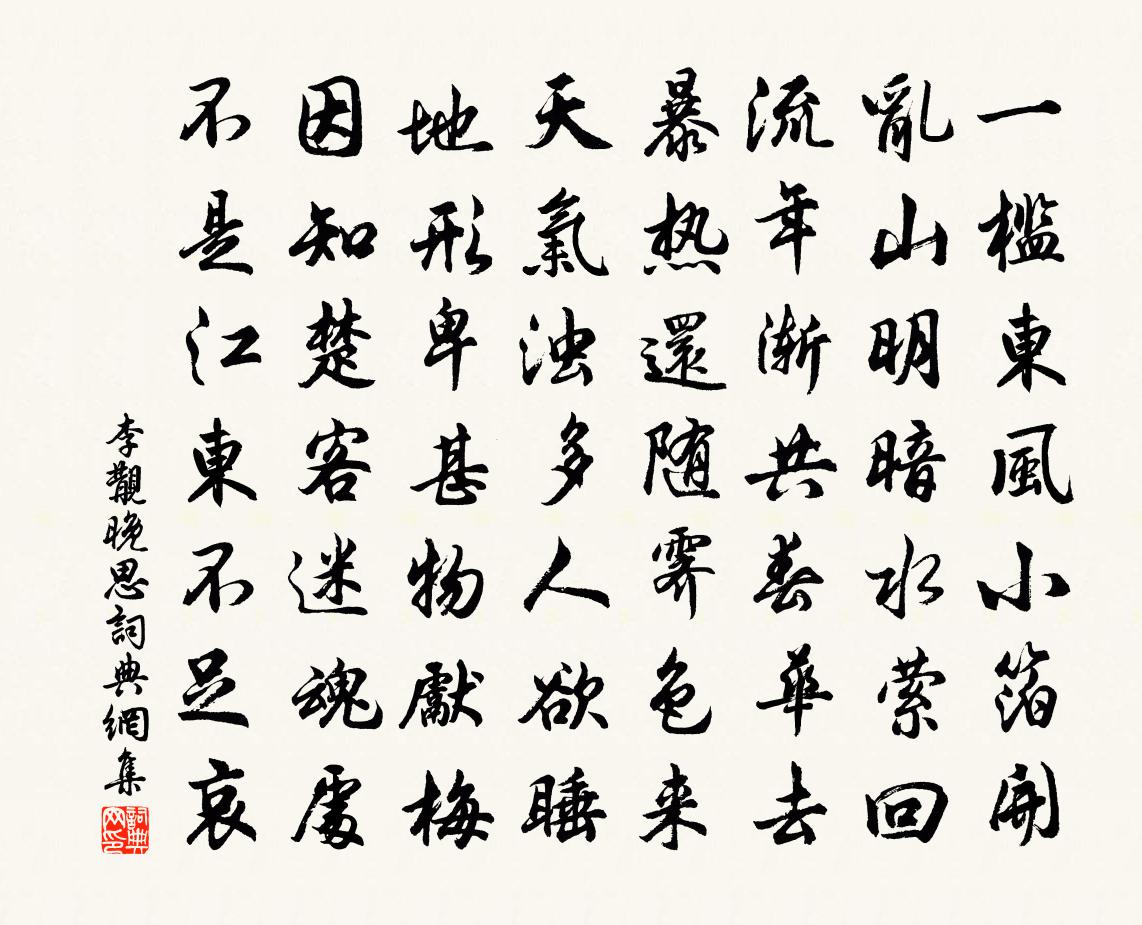 一檻東風小箔開
亂山明暗水萦回
流年漸共春華去
暴热還随霽色来
天氣浊多人欲睡
地形卑甚物厭梅
因知楚客迷魂處
不是江東不足哀
李覯晚思詞典網集
詞典网印